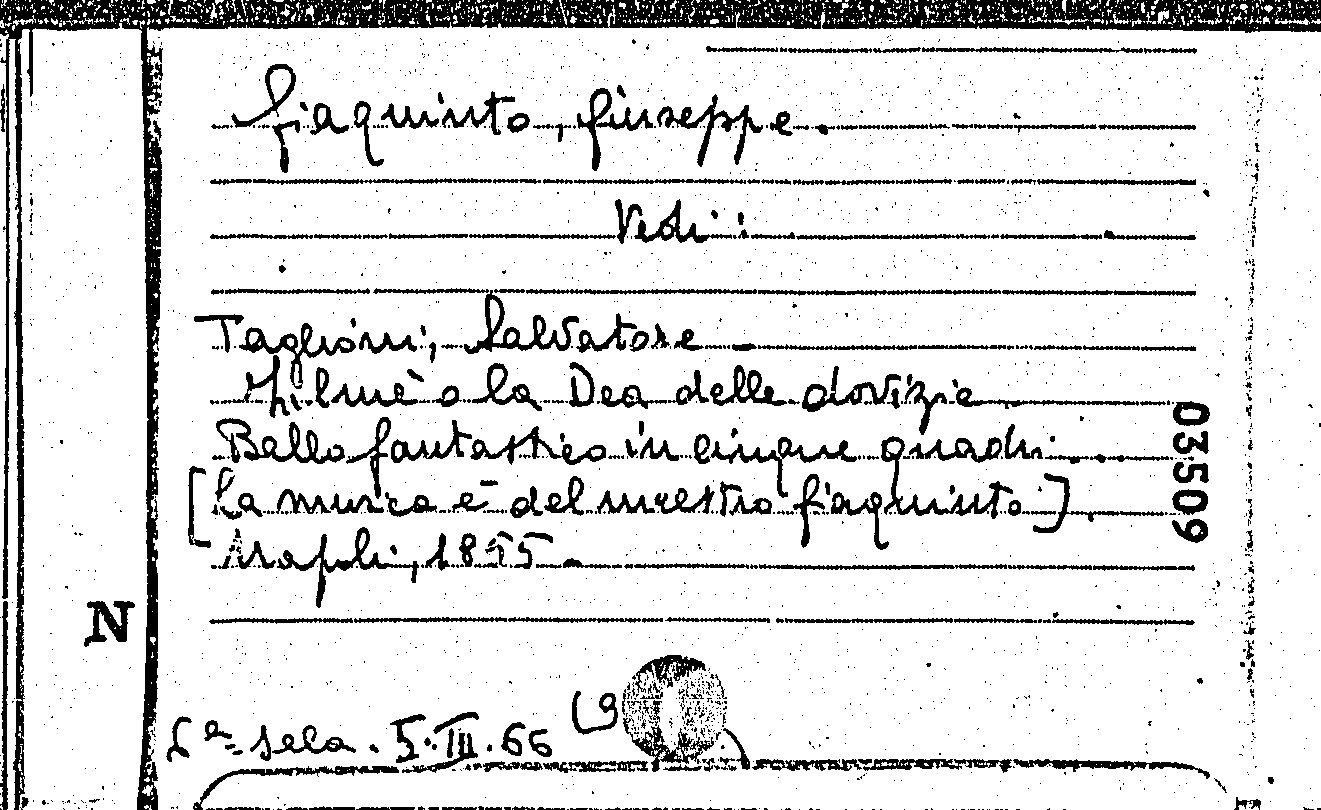 Giaquinto, Giuseppe.
Vedi:
Taglioni, Salvatore -
Zilmè o la Dea delle dovizie.
Ballo fantastico in cinque quadri...
[La musica è del maestro Giaquinto].
Napoli, 1855 -
03509
N
6ª sala. 5. III. 66 (9